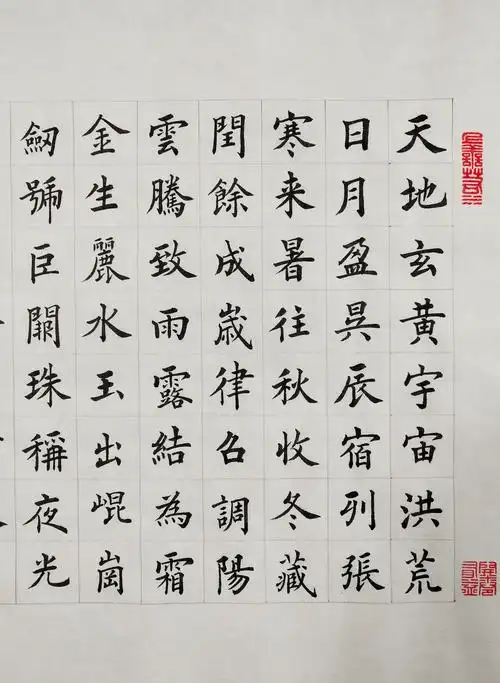 天地玄黃宇宙洪荒
日月盈昃辰宿列張
寒来暑往秋收冬藏
閏餘成嵗律召調陽
雲騰致雨露結為霜
金生麗水玉出崐崗
劒號巨闕珠稱夜光